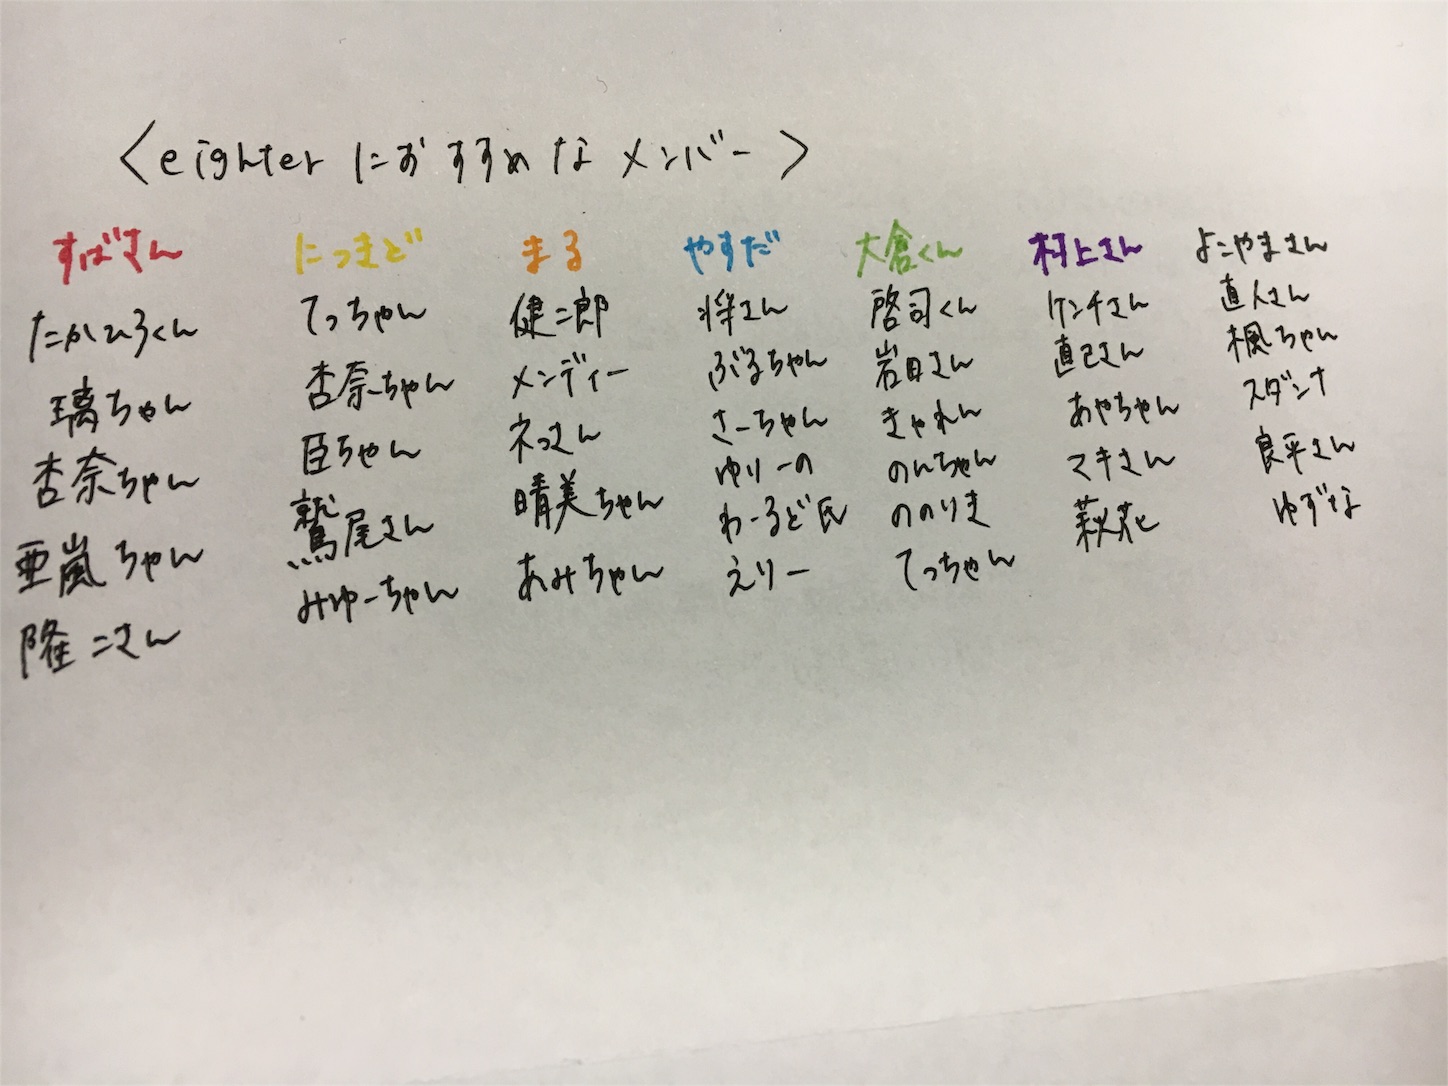 <eighterにおすすめなメンバー>
すばさん にっきど まる やすだ 大倉くん 村上さん よこやまさん
たかひろくん てっちゃん 健二郎 将さん 啓司くん ケンチさん 直人さん
璃ちゃん 杏奈ちゃん メンディー ぶるちゃん 岩田さん 直己さん 楓ちゃん
杏奈ちゃん 臣ちゃん ネスさん さーちゃん きゃれん あやちゃん スダンナ
亜嵐ちゃん 鷲尾さん 晴美ちゃん ゆりーの のんちゃん マキさん 良平さん
隆二さん みゆーちゃん あみちゃん わーるど氏 ののりき 萩花 ゆずな
えりー てっちゃん